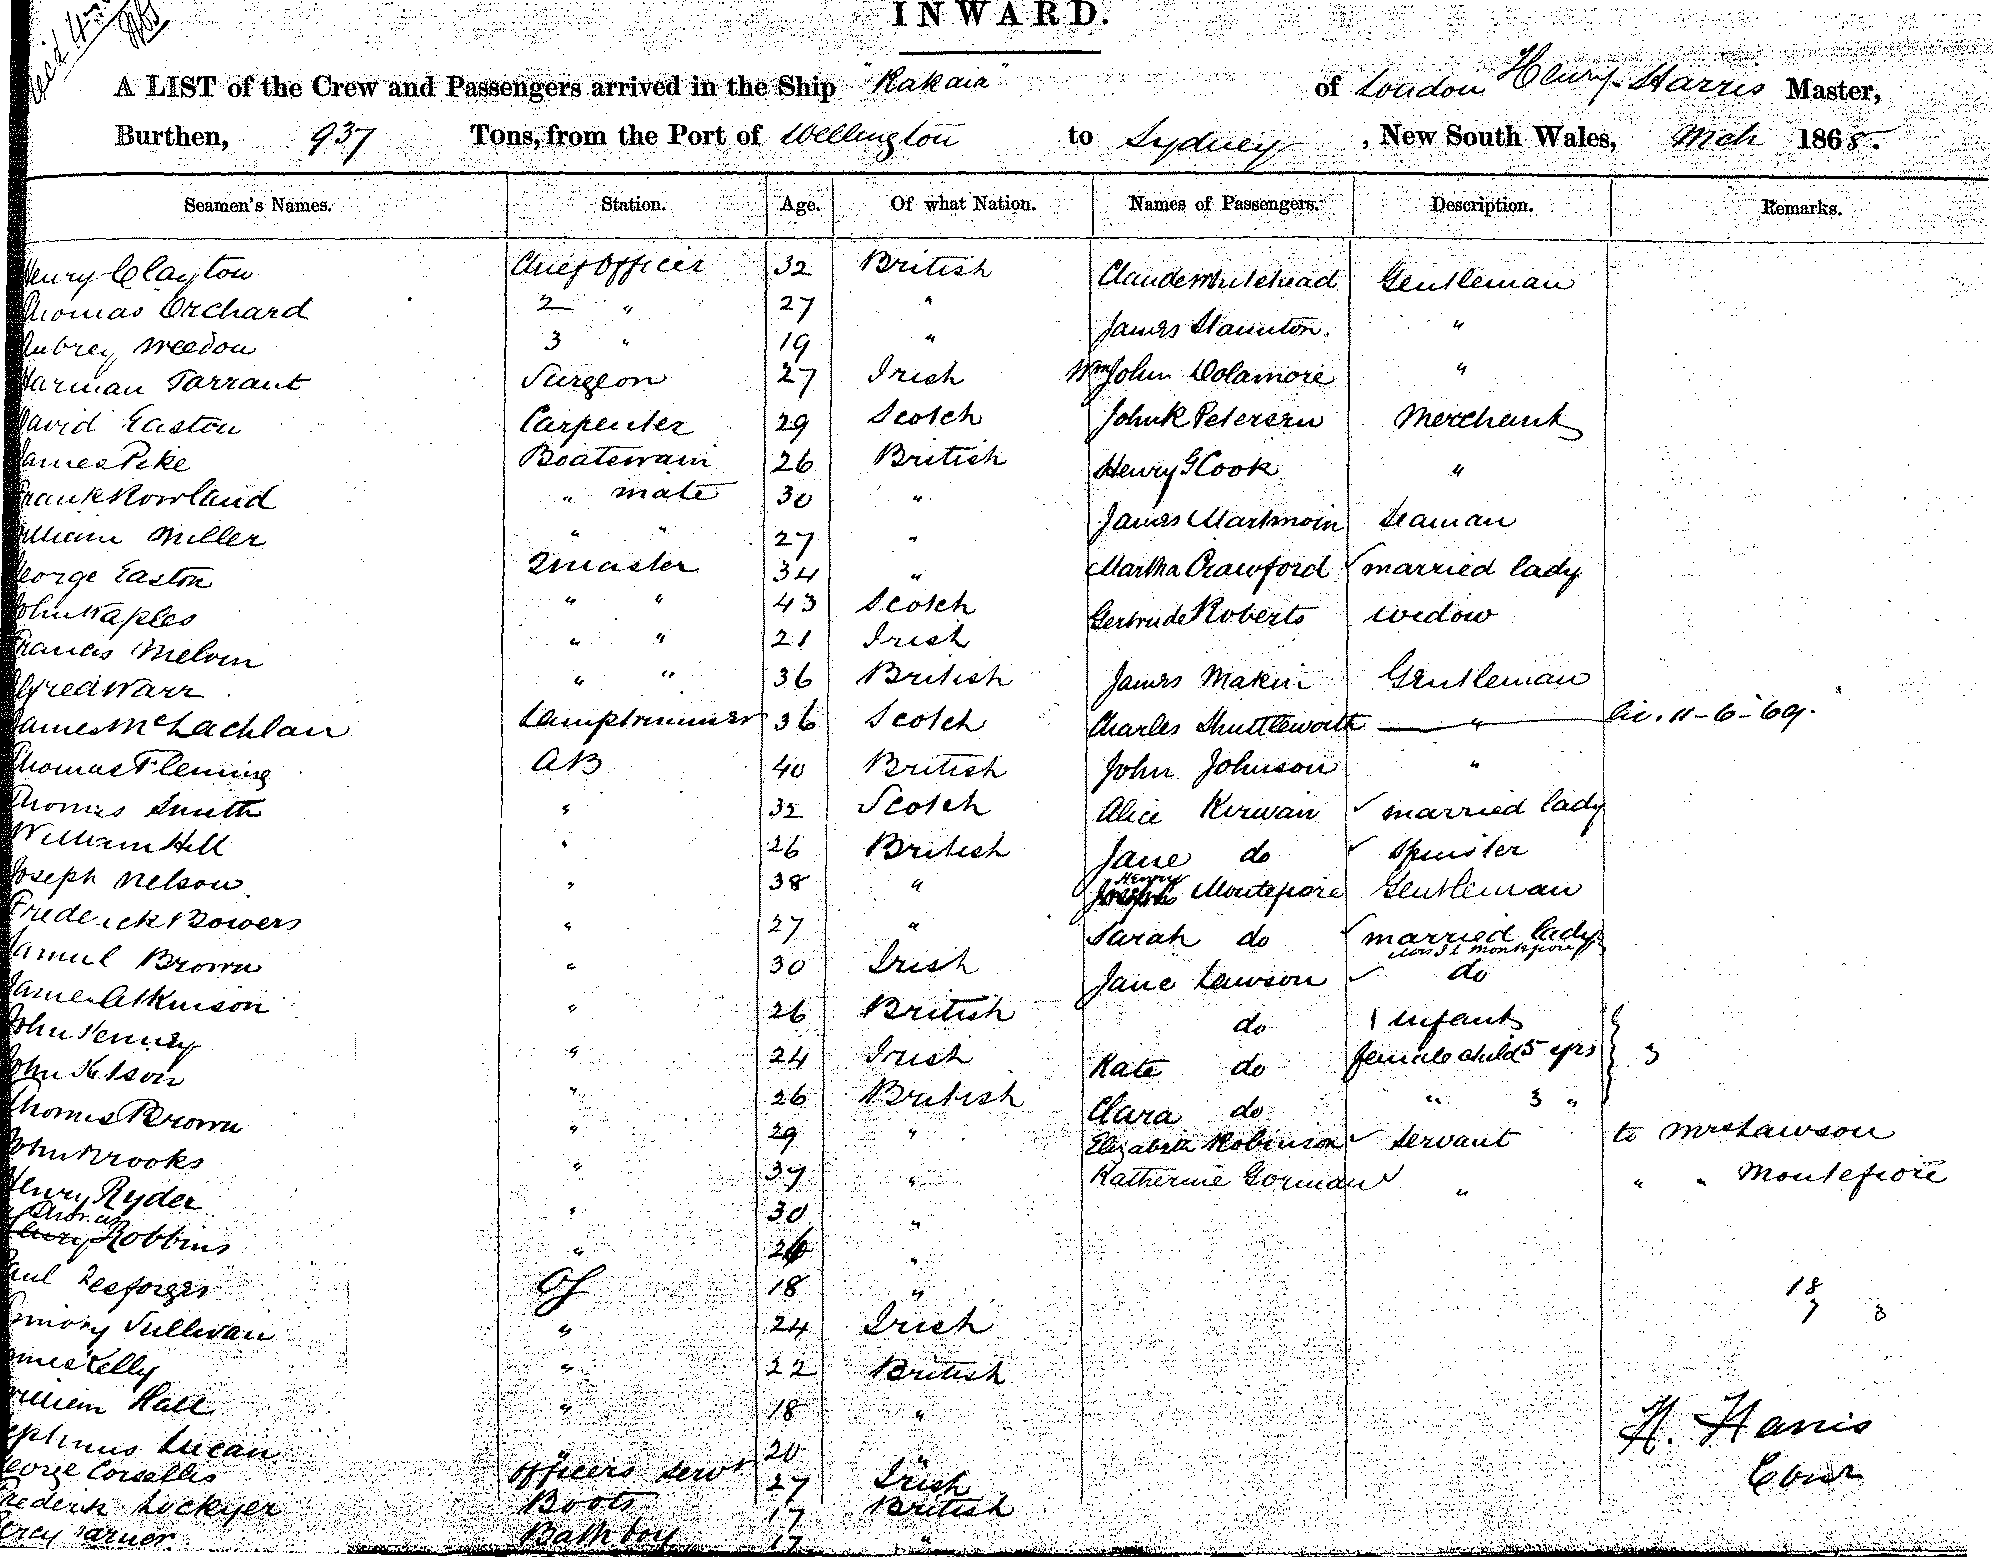 INWARD.
A LIST of the Crew and Passengers arrived in the Ship "Rakaia" of London Henry Harris Master,
Burthen, 937 Tons, from the Port of Wellington to Sydney, New South Wales, Mch 1868.
Seamen's Names. Station. Age. Of what Nation. Names of Passengers. Description. Remarks.
Henry Clayton Chief Officer 32 British Claude Whitehead Gentleman
Thomas Orchard 2 " 27 " James Staunton. "
Aubrey Weedon 3 " 19 "
Harman Tarrant Surgeon 27 Irish Wm John Dolamore "
David Easton Carpenter 29 Scotch John K Petersen Merchant
James Pike Boatswain 26 British Henry G Cook "
Frank Rowland " mate 30 "
William Miller " " 27 " James Seaman
George Easton Qmaster 34 " Martha Crawford ✓ married lady
John Waples " " 43 Scotch Gertrude Roberts widow
Francis Melvin " " 21 Irish
Alfred Warr " " 36 British James Makin Gentleman
James McLachlan Lamptrimmer 36 Scotch Charles Shuttleworth " lic. 11-6-69.
Thomas Fleming AB 40 British John Johnson "
Thomas Smith " 32 Scotch Alice Kirwan ✓ married lady
William Hill " 26 British Jane do ✓ Spinster
Joseph Nelson " 38 " Henry Montefiore Gentleman
Frederick Bowers " 27 " Sarah do ✓ married lady
Samuel Brown " 30 Irish Jane Lawson ✓ do
James Atkinson " 26 British do 1 infant
John Penney " 24 Irish Kate do female child 5 yrs } 3
John Kelson " 26 British Clara do " 3 "
Thomas Brown " 29 " Elizabeth Robinson ✓ Servant to Mrs Lawson
John Brooks " 39 " Katherine Gorman ✓ " " " Montefiore
Henry Ryder " 30 "
Thomas Robbins " 26 "
Paul Desforges OS 18 " 18
Timothy Sullivan " 24 Irish 7 3
James Kelly " 22 British
William Hall " 18 " H. Harris
Lucan " 20
George Corsellis Officers servt 27 Irish
Frederick Lockyer Boots 17 British
Percy Turner Bath boy 17 "